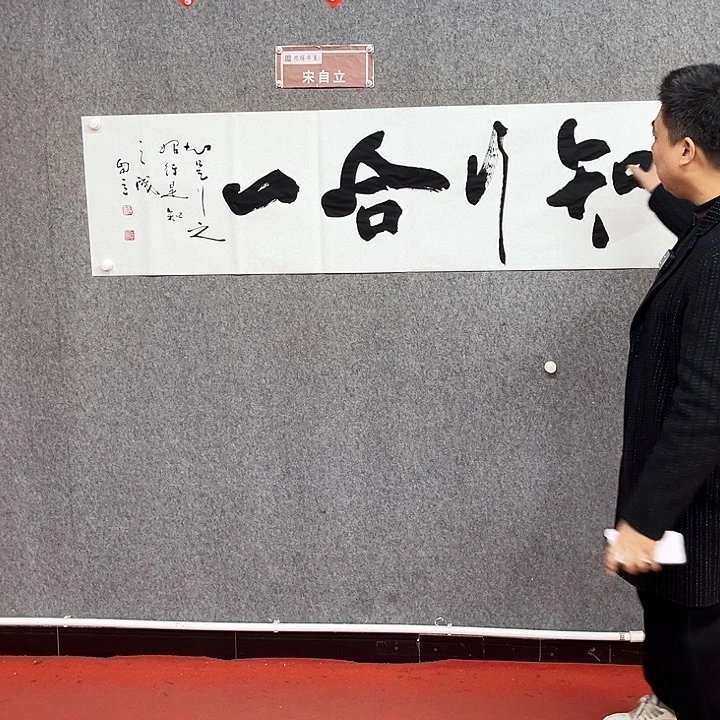 宋自立
知行合一
知是行之
始行是知
之成
自立